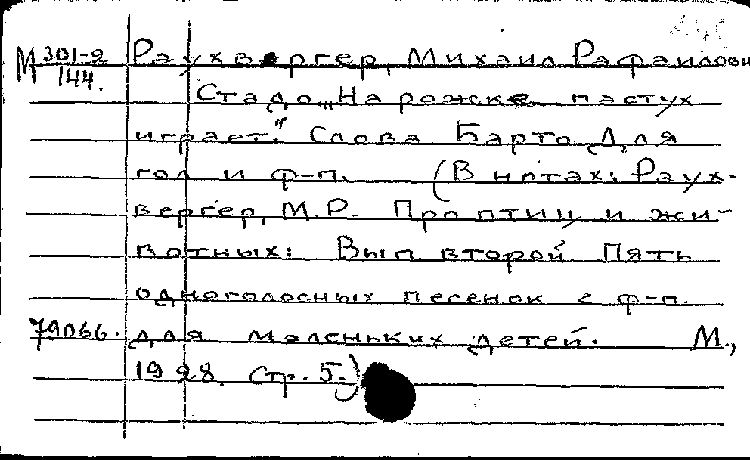 М 301-2 Раухвергер, Михаил Рафаилович
144. Стадо „На рожке пастух
играет." Слова Барто Для
гол и ф-п. (В нотах: Раух-
вергер, М.Р. Про птиц и жи-
вотных: Вып второй Пять
одноголосных песенок с ф-п.
79066. для маленьких детей. М.,
1928. Стр. 5.)